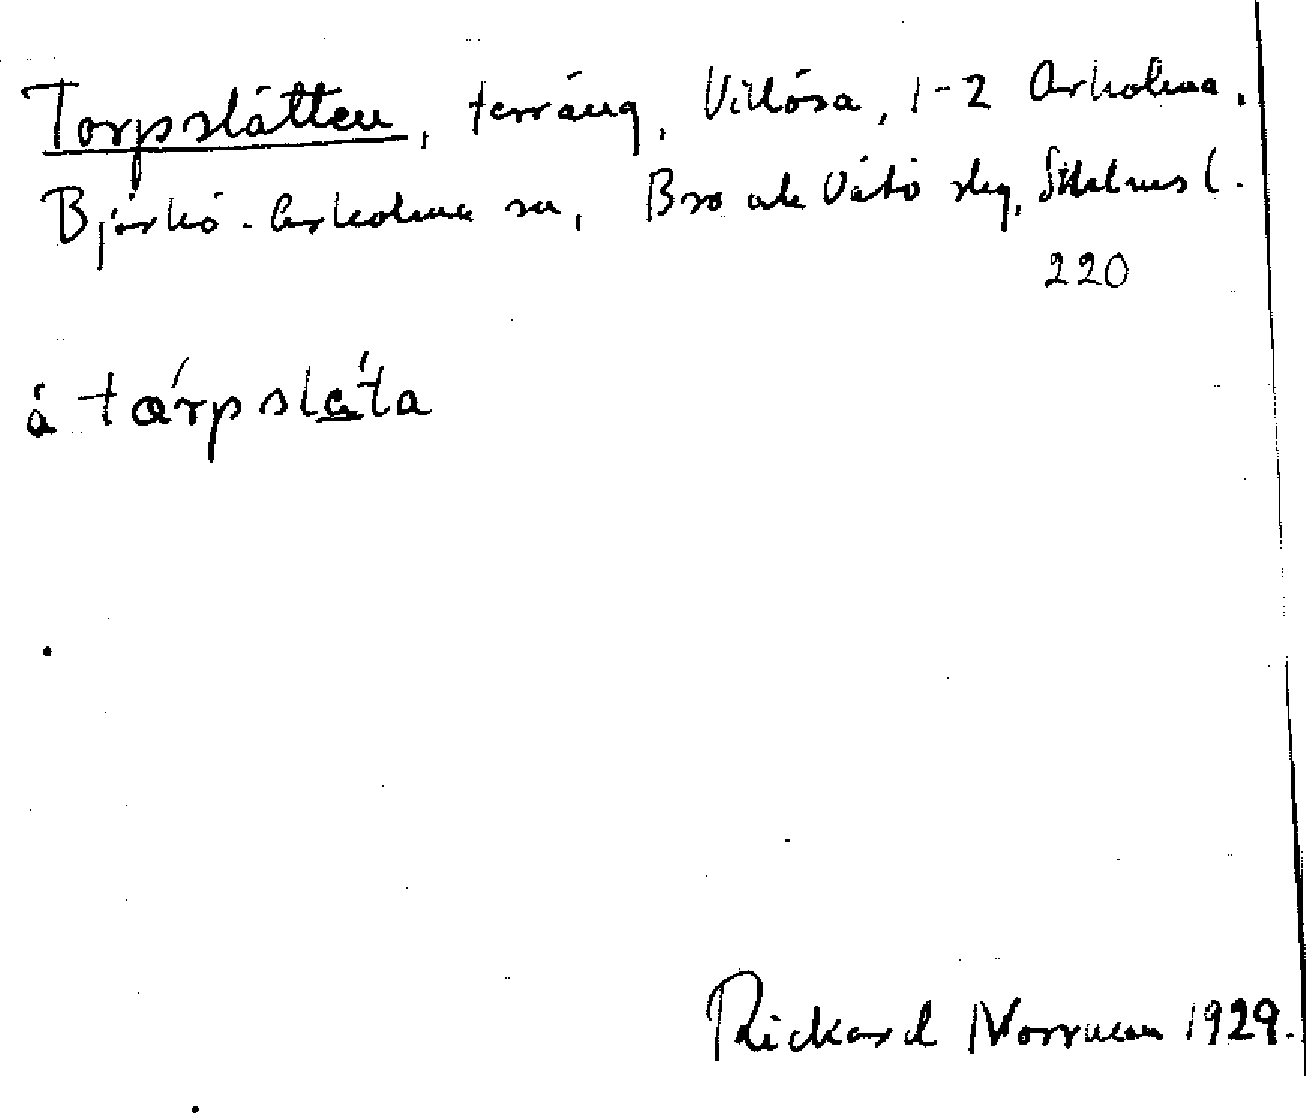 Torpslätten, terräng, Villösa, 1-2 Arholma,
Björkö-Arholma sn, Bro och Vätö slg, Sthlms l.
220
å tårpslä́ta
Rickard Norrman 1929.